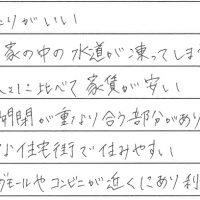 たりがいい
家の中の水道が凍ってしま
に比べて家賃が安い
開閉が重なり合う部分があり
な住宅街で住みやすい
グモールやコンビニが近くにあり利